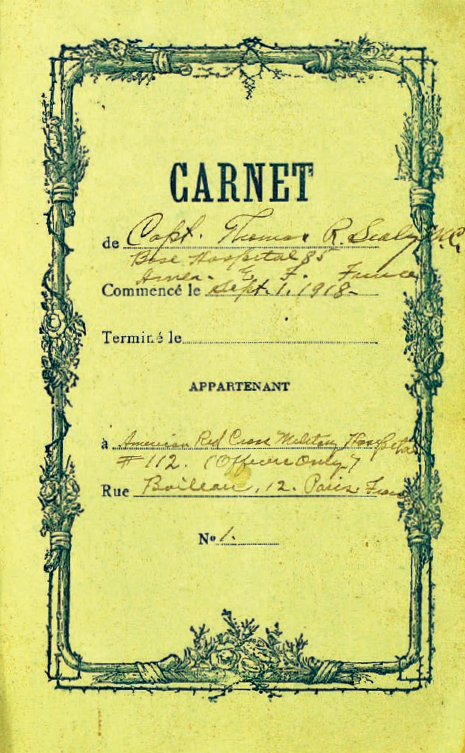 CARNET
de Capt. Thomas R. Sealy M.C.
Base Hospital 85
Amer. E. F. France
Commencé le Sept. 1. 1918-
Terminé le
APPARTENANT
à American Red Cross Military Hospital
# 112. (Officers Only.)
Rue Boileau, 12. Paris France
No 1.